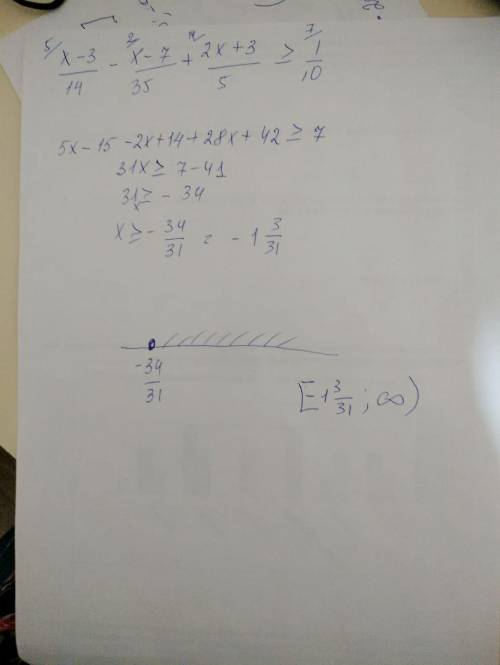 5/ (x-3)/14 - 2/ (x-7)/35 + (2x+3)/5 ≥ 7/ 1/10
5x-15-2x+14+28x+42 ≥ 7
31x ≥ 7-41
31x ≥ -34
x ≥ -34/31 = -1 3/31
-34/31
[-1 3/31; ∞)